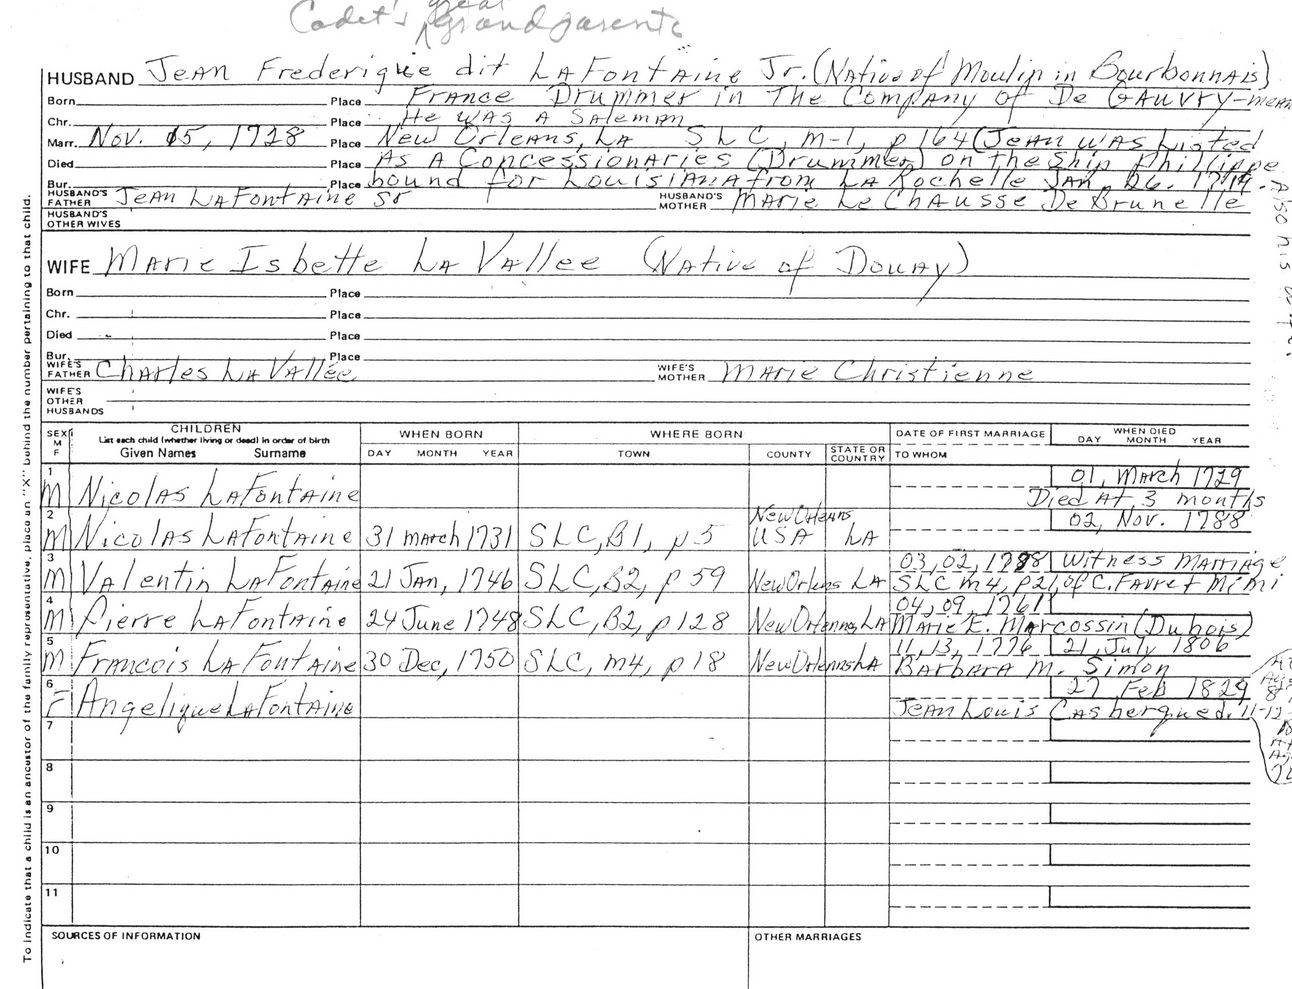 Cadet's great Grandparents
HUSBAND Jean Frederique dit LaFontaine Jr. (Native of Moulin in Bourbonnais)
Born Place France Drummer in The Company of De Gauvry-mean
Chr. Place He was a Saleman
Marr. Nov. 15, 1728 Place New Orleans, LA SLC, M-1, p 164 (Jean was Listed
Died Place As A Concessionaries (Drummer) on the Ship Phillippe
Bur. Place bound for Louisiana from La Rochelle Jan. 26. 1719.
Also his wife.
HUSBAND'S FATHER Jean LaFontaine Sr HUSBAND'S MOTHER Marie Le Chausse De Brunelle
HUSBAND'S OTHER WIVES
WIFE Marie Isbette La Vallee (Native of Douay)
Born Place
Chr. Place
Died Place
Bur. Place
WIFE'S FATHER Charles La Vallée WIFE'S MOTHER Marie Christienne
WIFE'S OTHER HUSBANDS
SEX M F CHILDREN List each child (whether living or dead) in order of birth Given Names Surname WHEN BORN DAY MONTH YEAR WHERE BORN TOWN COUNTY STATE OR COUNTRY DATE OF FIRST MARRIAGE TO WHOM WHEN DIED DAY MONTH YEAR
1 01, March 1729
M Nicolas LaFontaine Died At 3 months
2 New Orleans 02, Nov. 1788
M Nicolas LaFontaine 31 march 1731 SLC, B1, p 5 USA LA
3 03, 02, 1788 Witness Marriage
M Valentin LaFontaine 21 Jan, 1746 SLC, B2, p 59 New Orleans LA SLC m4, p 21, of C. Favre + Mimi
4 04, 09, 1761
M Pierre LaFontaine 24 June 1748 SLC, B2, p 128 New Orleans, LA Marie E. Marcossin (Dubois)
5 11, 13, 1776 21, July 1806
M Francois LaFontaine 30 Dec, 1750 SLC, m4, p 18 New Orleans LA Barbara M. Simon
6 27 Feb 1829
F Angelique LaFontaine Jean Louis Casbergue d. 11-12-
7
8
9
10
11
SOURCES OF INFORMATION OTHER MARRIAGES
To indicate that a child is an ancestor of the family representative, place an "X" behind the number pertaining to that child.